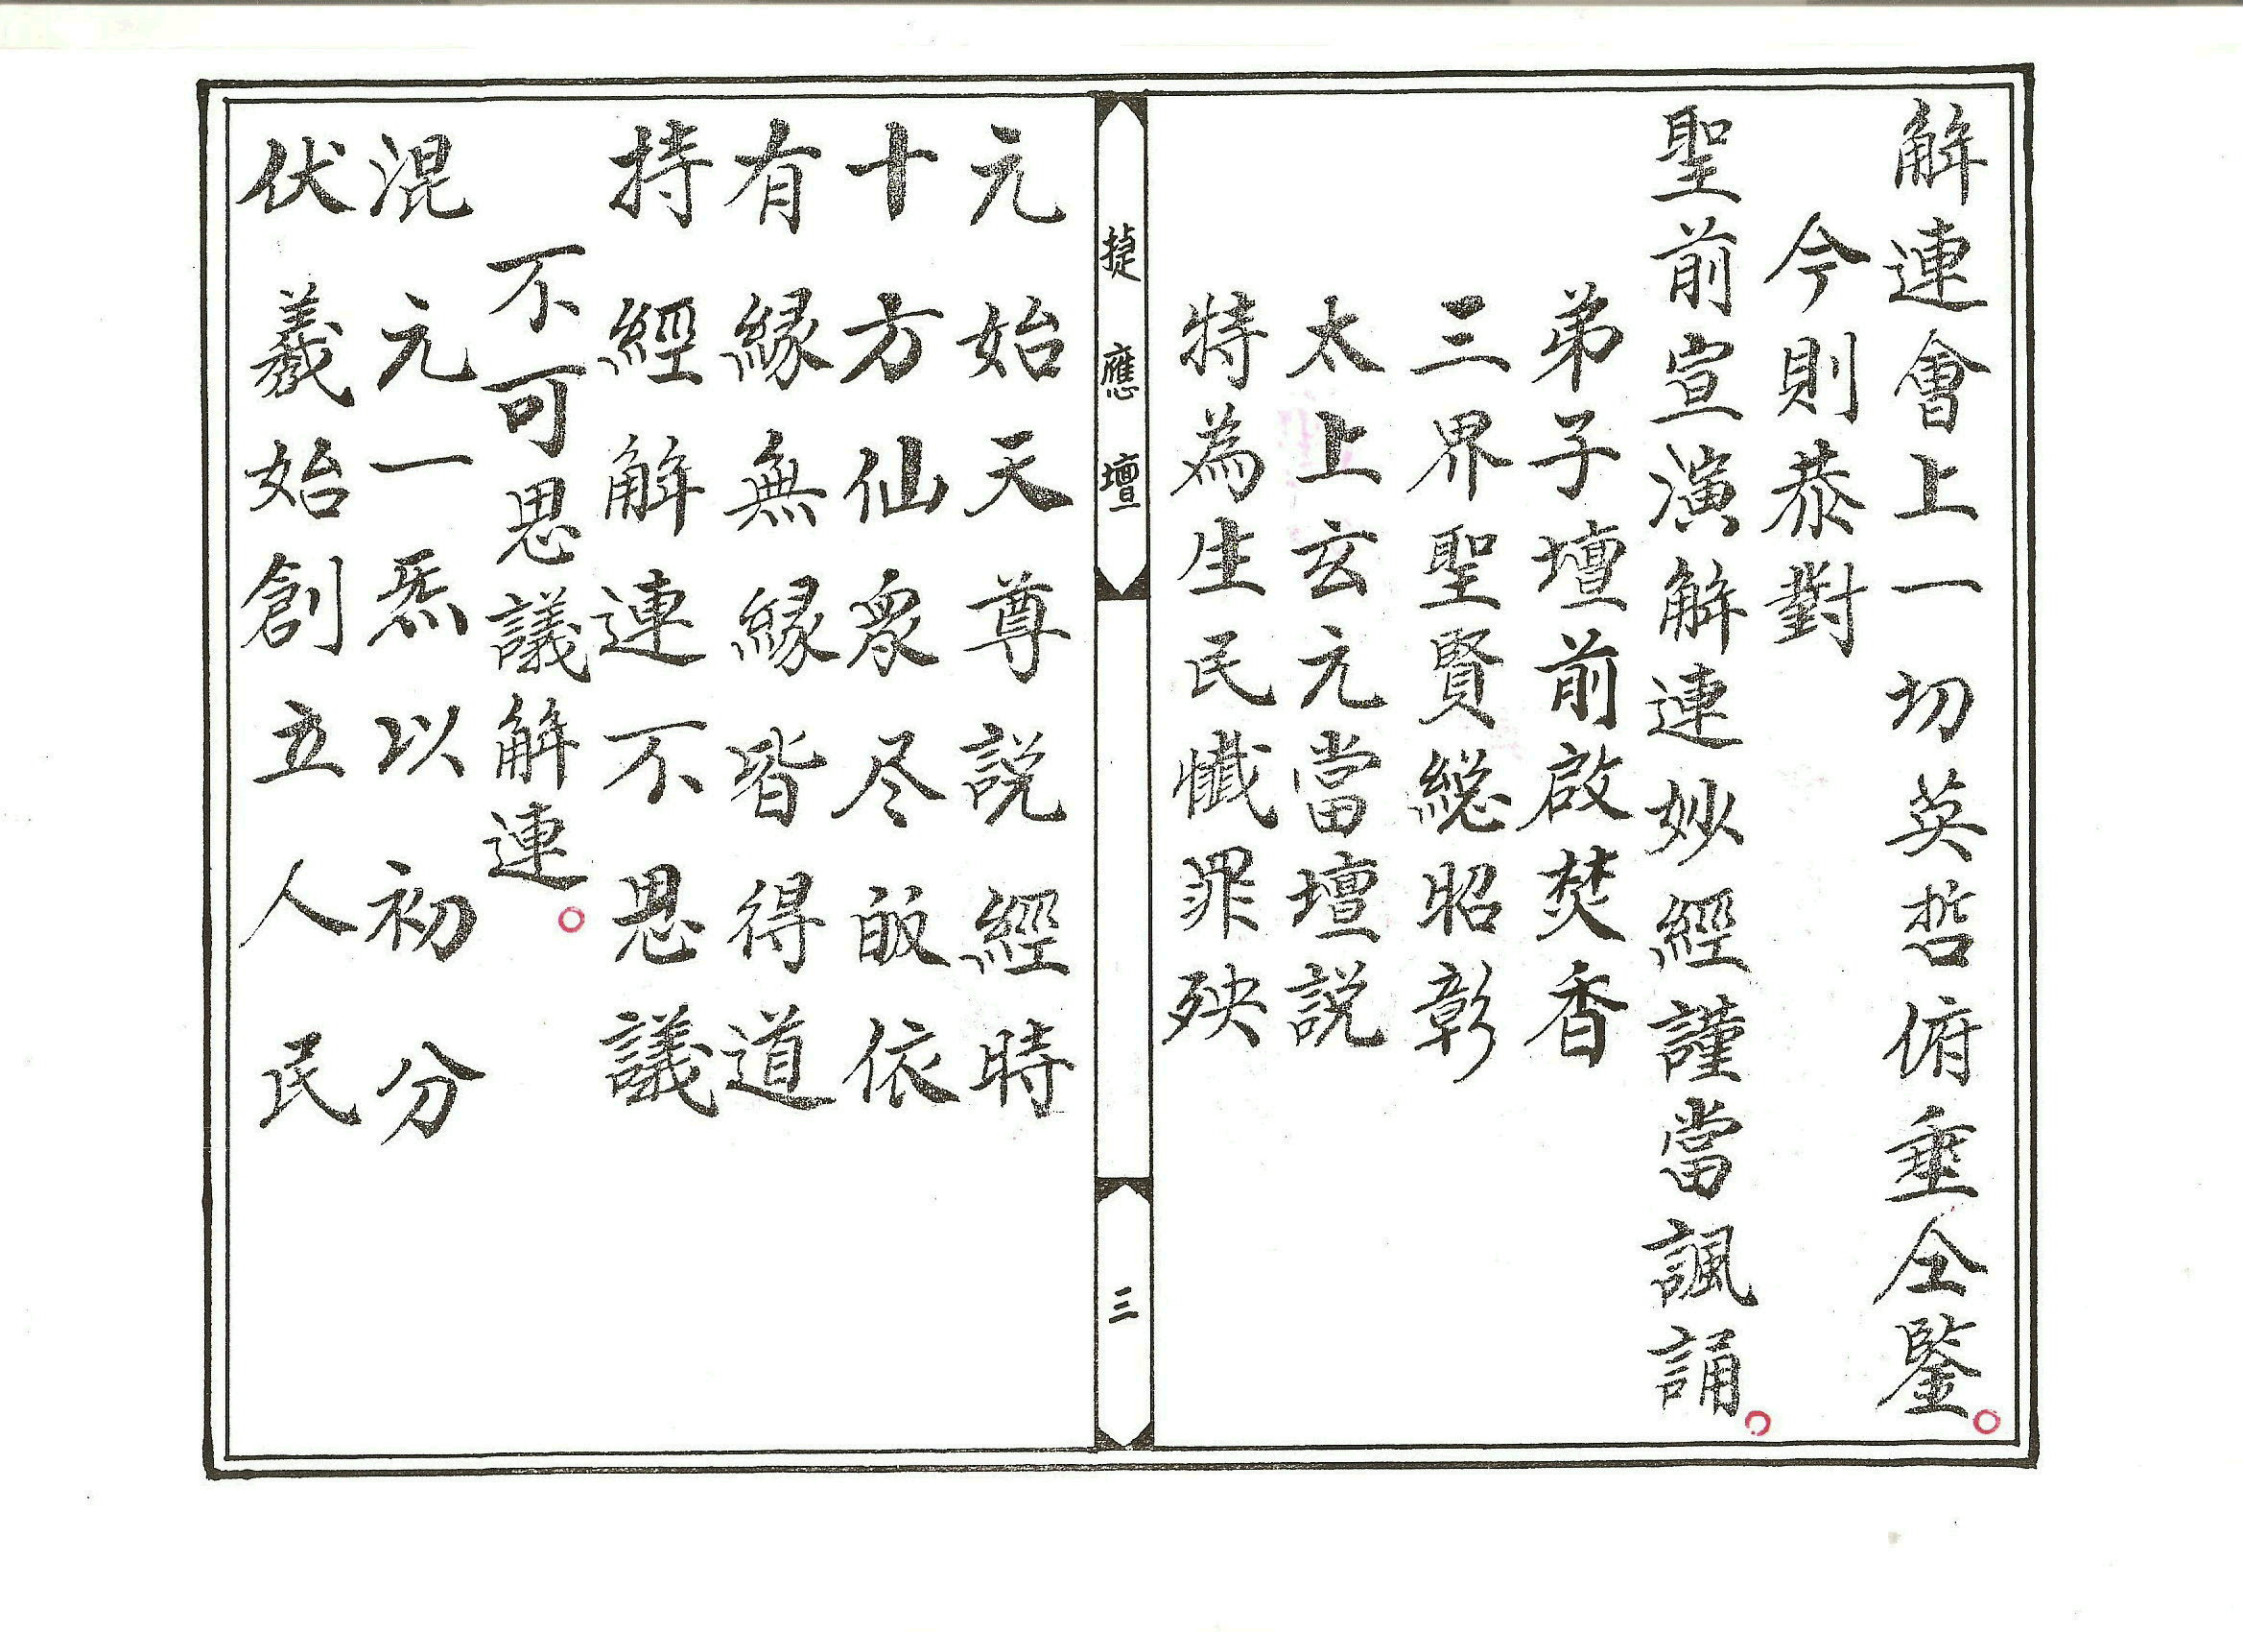 解連會上一切英哲俯垂仝鑒
今則恭對
聖前宣演解連妙經謹當諷誦
弟子壇前啟焚香
三界聖賢総昭彰
太上玄元當壇説
特為生民懺罪殃
捷應壇
三
元始天尊説經時
十方仙眾尽皈依
有縁無縁皆得道
持經解連不思議
不可思議解連
混元一炁以初分
伏羲始創立人民